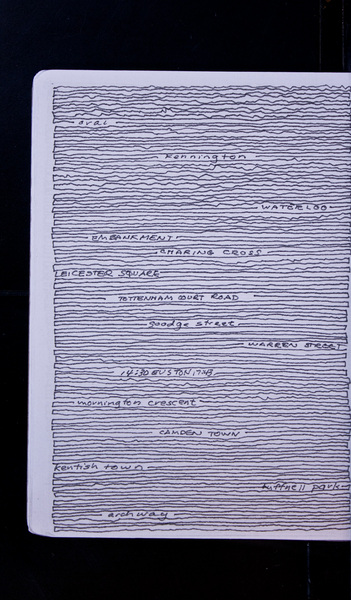 oval
Kennington
WATERLOO
EMBANKMENT
CHARING CROSS
LEICESTER SQUARE
TOTTENHAM COURT ROAD
goodge street
WARREN STREET
14:30 EUSTON
mornington crescent
CAMDEN TOWN
kentish town
tuffnell park
archway